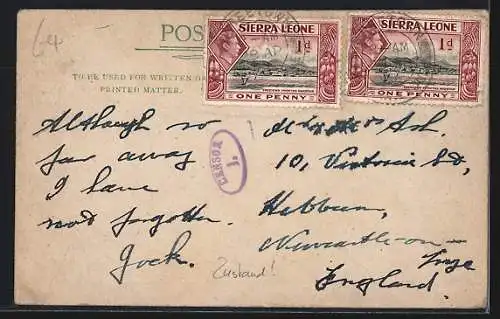 6,4
POS
TO BE USED FOR WRITTEN OR
PRINTED MATTER.
SIERRA LEONE
1d
ONE PENNY
SIERRA LEONE
1d
ONE PENNY
AM
CENSOR
1.
Although so
far away
I have
not forgotten.
Jock.
Ash.
10, Victoria Rd,
Hebburn,
Newcastle-on-
Tyne
England.
Zustand!